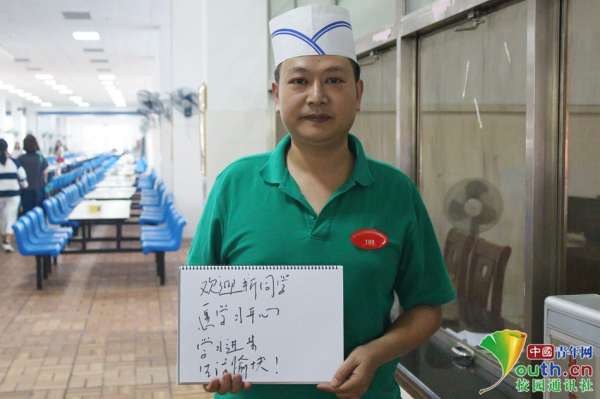 欢迎新同学
学习开心
学习进步
生活愉快！
中国青年网
Youth.cn
校园通讯社